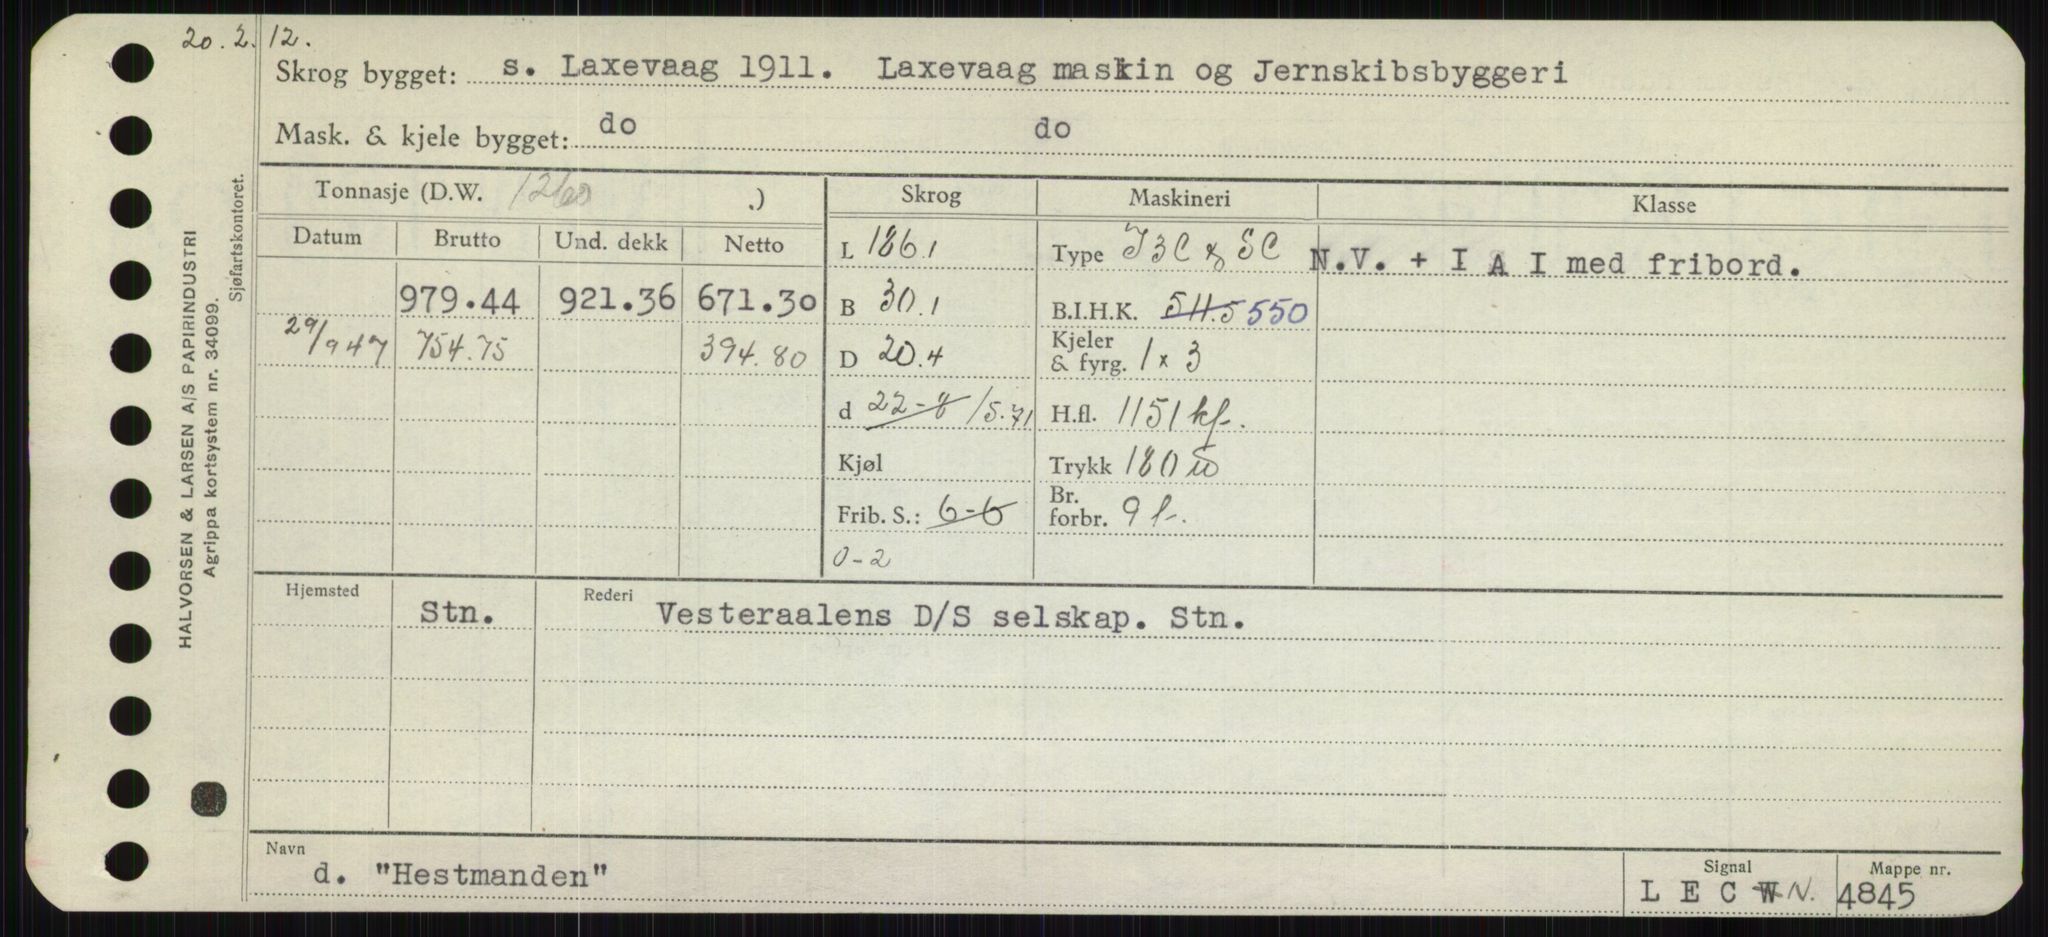 20.2.12.
Skrog bygget: s. Laxevaag 1911. Laxevaag maskin og Jernskibsbyggeri
Mask. & kjele bygget: do do
Tonnasje (D.W. 1260 .) Skrog Maskineri Klasse
Datum Brutto Und. dekk Netto
L 186.1 Type T3C & SC N.V. + I A I med fribord.
979.44 921.36 671.30 B 30.1 B.I.H.K. 545 550
29/9 47 754.75 394.80 D 20.4 Kjeler & fyrg. 1 x 3
d 22-8 /5.71 H.fl. 1151 kf.
Kjøl Trykk 180 lb
Frib. S.: 6-6 Br. forbr. 9 t.
0-2
Hjemsted Stn. Rederi Vesteraalens D/S selskap. Stn.
Navn d. "Hestmanden" Signal L E C W N. Mappe nr. 4845
HALVORSEN & LARSEN A/S PAPIRINDUSTRI
Agrippa kortsystem nr. 34099.
Sjøfartskontoret.